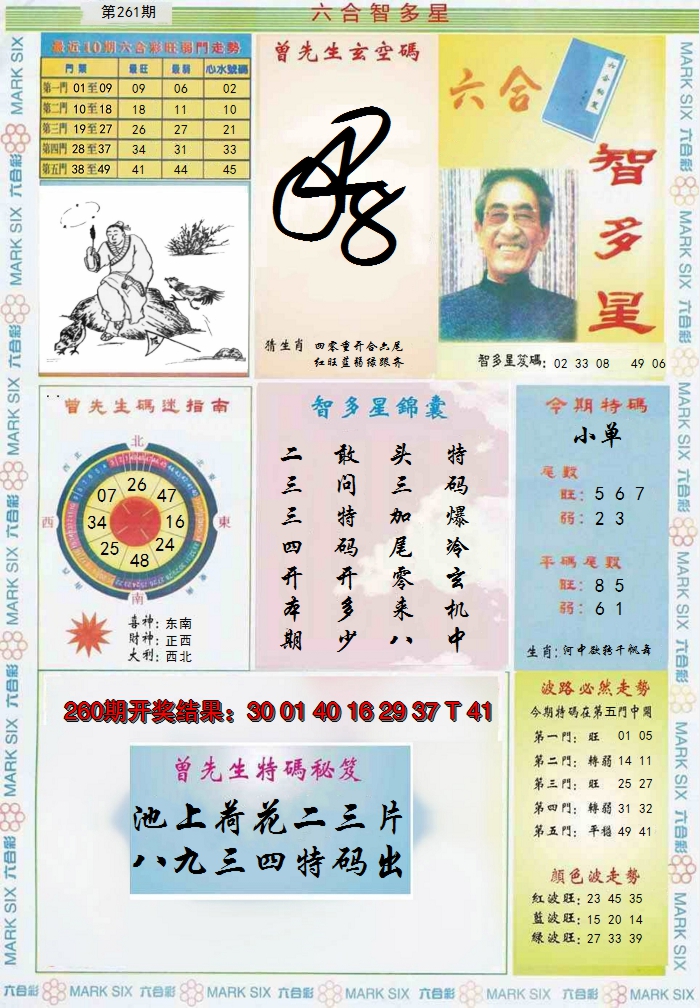 第261期
六合智多星
最近10期六合彩旺弱門走勢
門類 最旺 最弱 心水號碼
第一門 01至09 09 06 02
第二門 10至18 18 11 10
第三門 19至27 26 27 21
第四門 28至37 34 31 33
第五門 38至49 41 44 45
曾先生玄空碼
猜生肖 四零重开合六尾
红旺蓝弱绿跟齐
六合
智多星
智多星笈碼: 02 33 08 49 06
曾先生碼迷指南
北
東北
東
南
西
西北
26
47
16
24
48
25
34
07
喜神: 东南
財神: 正西
大利: 西北
智多星錦囊
特码爆冷玄机中
头三加尾零来八
敢问特码开多少
二三三四开本期
今期特碼
小单
尾數
旺: 5 6 7
弱: 2 3
平碼尾數
旺: 8 5
弱: 6 1
生肖: 河中欲转千帆舞
260期开奖结果: 30 01 40 16 29 37 T 41
曾先生特碼秘笈
池上荷花二三片
八九三四特码出
波路必然走勢
今期特碼在第五門中開
第一門: 旺 01 05
第二門: 轉弱 14 11
第三門: 旺 25 27
第四門: 轉弱 31 32
第五門: 平穩 49 41
顏色波走勢
紅波旺: 23 45 35
藍波旺: 15 20 14
綠波旺: 27 33 39
六合彩 MARK SIX 六合彩 MARK SIX 六合彩 MARK SIX 六合彩 MARK SIX 六合彩 MARK SIX